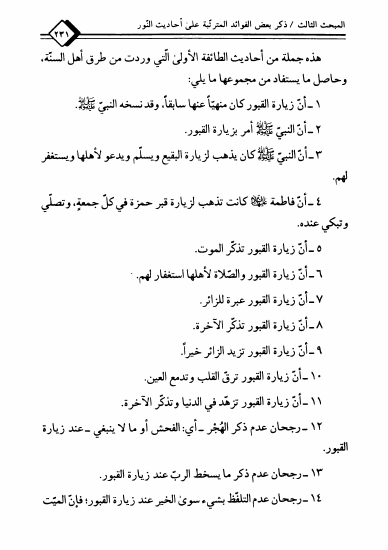 المبحث الثالث / ذكر بعض الفوائد المترتّبة على أحاديث النّور
٢٣١
هذه جملة من أحاديث الطائفة الأولىٰ الّتي وردت من طرق أهل السنّة،
وحاصل ما يستفاد من مجموعها ما يلي:
١ ـ أنّ زيارة القبور كان منهيّاً عنها سابقاً، وقد نسخه النبيّ ﷺ.
٢ ـ أنّ النبيّ ﷺ أمر بزيارة القبور.
٣ ـ أنّ النبيّ ﷺ كان يذهب لزيارة البقيع ويسلّم ويدعو لأهلها ويستغفر
لهم.
٤ ـ أنّ فاطمة كانت تذهب لزيارة قبر حمزة في كلّ جمعةٍ، وتصلّي
وتبكي عنده.
٥ ـ أنّ زيارة القبور تذكّر الموت.
٦ ـ أنّ زيارة القبور والصّلاة لأهلها استغفار لهم.
٧ ـ أنّ زيارة القبور عبرة للزائر.
٨ ـ أنّ زيارة القبور تذكّر الآخرة.
٩ ـ أنّ زيارة القبور تزيد الزائر خيراً.
١٠ ـ أنّ زيارة القبور ترقّ القلب وتدمع العين.
١١ ـ أنّ زيارة القبور تزهّد في الدنيا وتذكّر الآخرة.
١٢ ـ رجحان عدم ذكر الهُجْر ـ أي: الفحش أو ما لا ينبغي ـ عند زيارة
القبور.
١٣ ـ رجحان عدم ذكر ما يسخط الربّ عند زيارة القبور.
١٤ ـ رجحان عدم التلفّظ بشيء سوىٰ الخير عند زيارة القبور؛ فإنّ الميّت